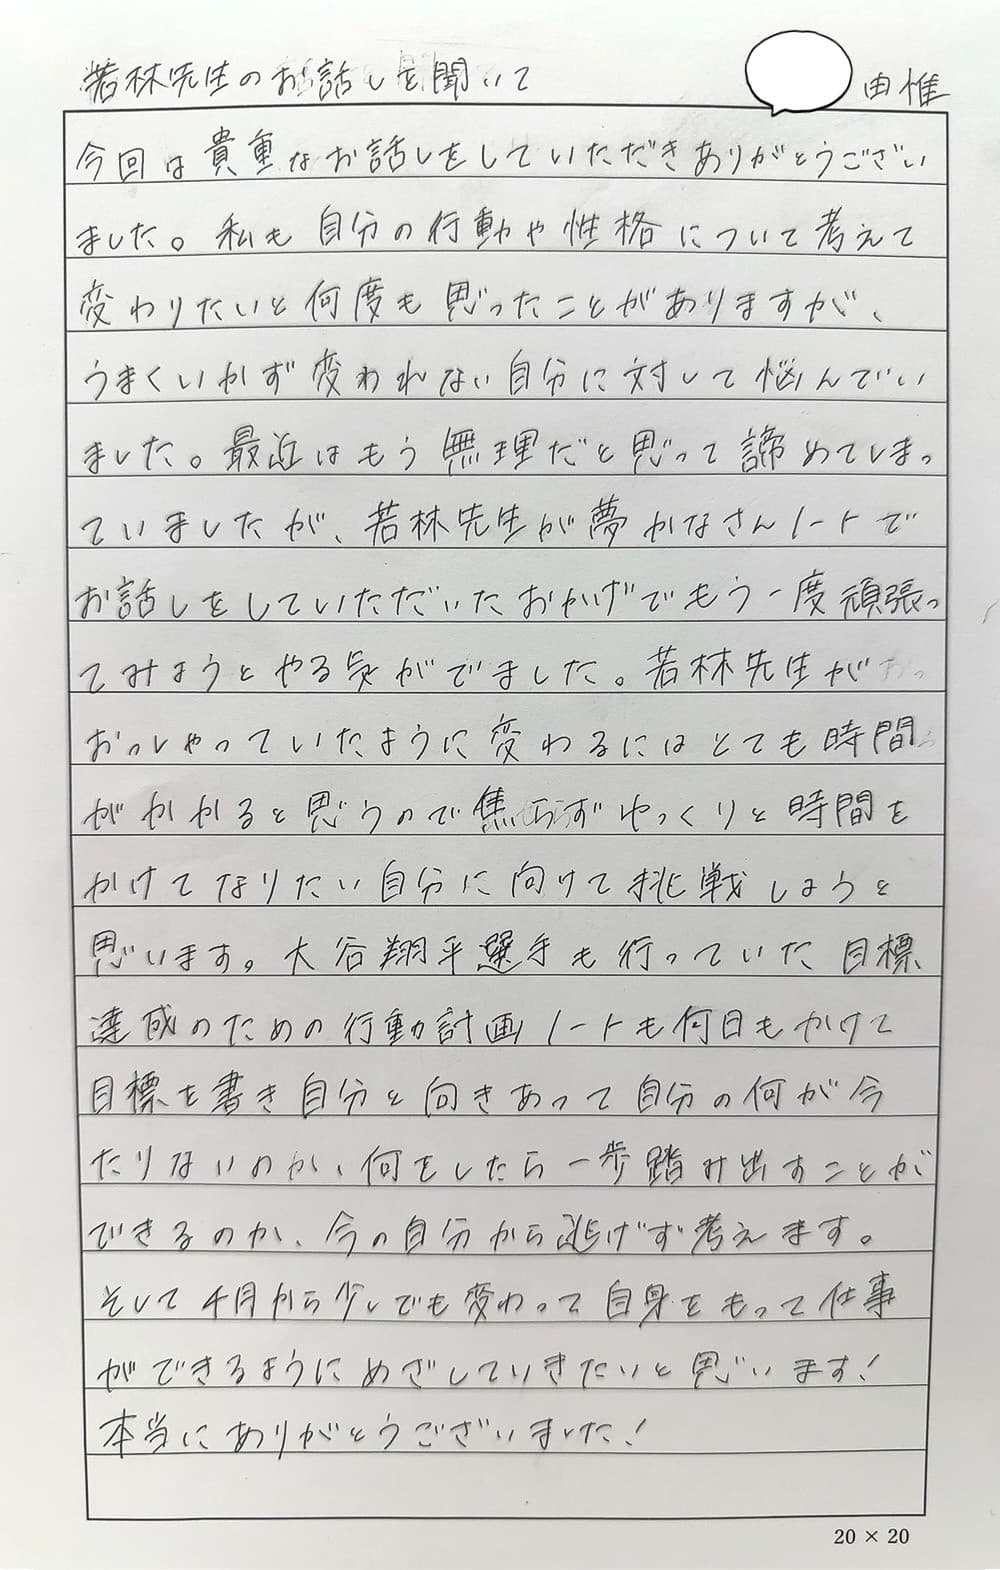 若林先生のお話しを聞いて 由惟
今回は貴重なお話しをしていただきありがとうござい
ました。私も自分の行動や性格について考えて
変わりたいと何度も思ったことがありますが、
うまくいかず変われない自分に対して悩んでい
ました。最近はもう無理だと思って諦めてしまっ
ていましたが、若林先生が夢かなさんノートで
お話しをしていただいたおかげでもう一度頑張っ
てみようとやる気がでました。若林先生が
おっしゃっていたように変わるにはとても時間
がかかると思うので焦らずゆっくりと時間を
かけてなりたい自分に向けて挑戦しようと
思います。大谷翔平選手も行っていた目標
達成のための行動計画ノートも何日もかけて
目標を書き自分と向きあって自分の何が今
たりないのか、何をしたら一歩踏み出すことが
できるのか、今の自分から逃げず考えます。
そして4月から少しでも変わって自身をもって仕事
ができるようにめざしていきたいと思います!
本当にありがとうございました!
20 × 20